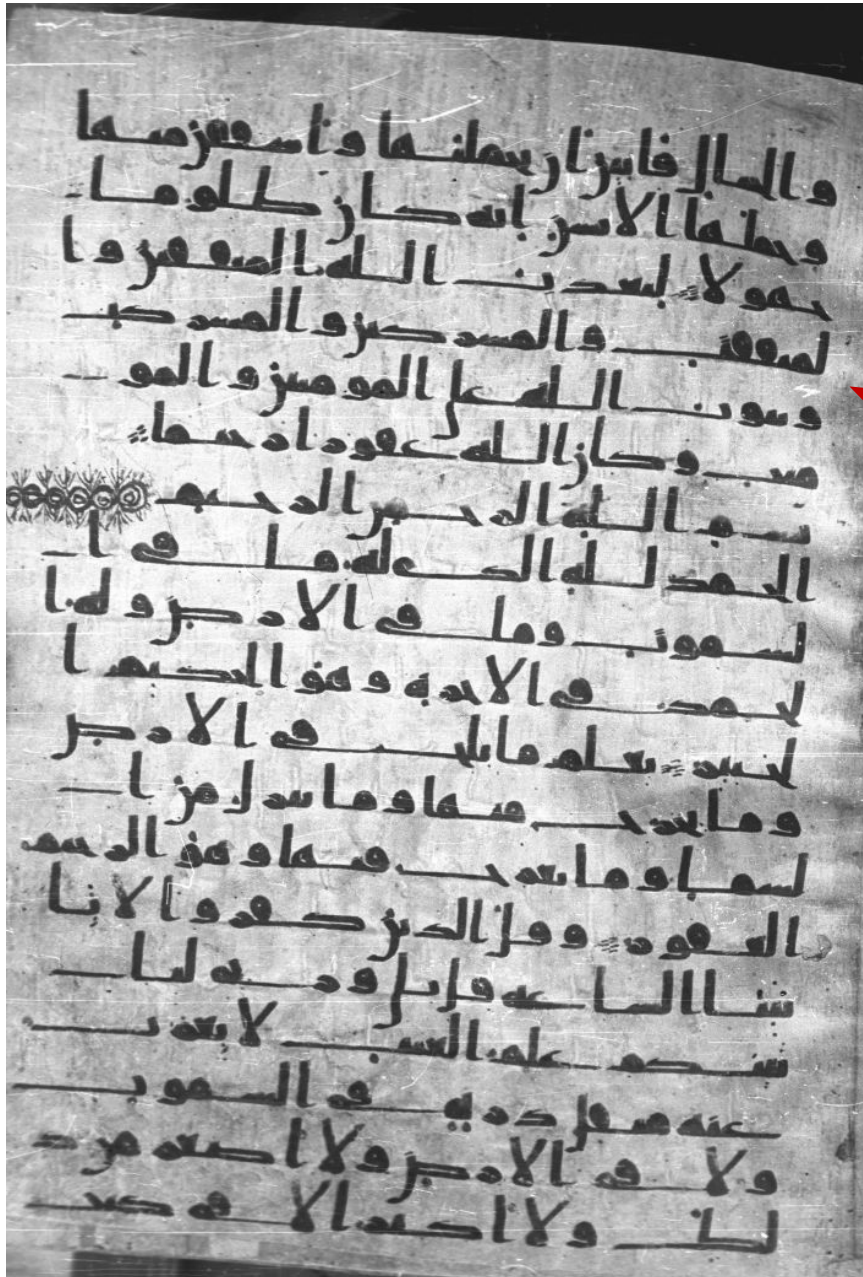 والجبال فابين ان يحملنها واشفقن منها
وحملها الانسن انه كان ظلوما
جهولا ليعذب الله المنفقين وا
لمنفقت والمشركين والمشركت
ويتوب الله على المومنين والمو
منت وكان الله غفورا رحيما
بسم الله الرحمن الرحيم
الحمد لله الذي له ما في ا
لسموت وما في الارض وله ا
لحمد في الاخرة وهو الحكيم ا
لخبير يعلم ما يلج في الارض
وما يخرج منها وما ينزل من ا
لسما وما يعرج فيها وهو الرحيم
الغفور وقل الذين كفروا لا تا
تينا الساعة قل بلى وربي لتا
تينكم علم الغيب لا يعزب
عنه مثقل ذرة في السموت
ولا في الارض ولا اصغر من ذ
لك ولا اكبر الا في كتب